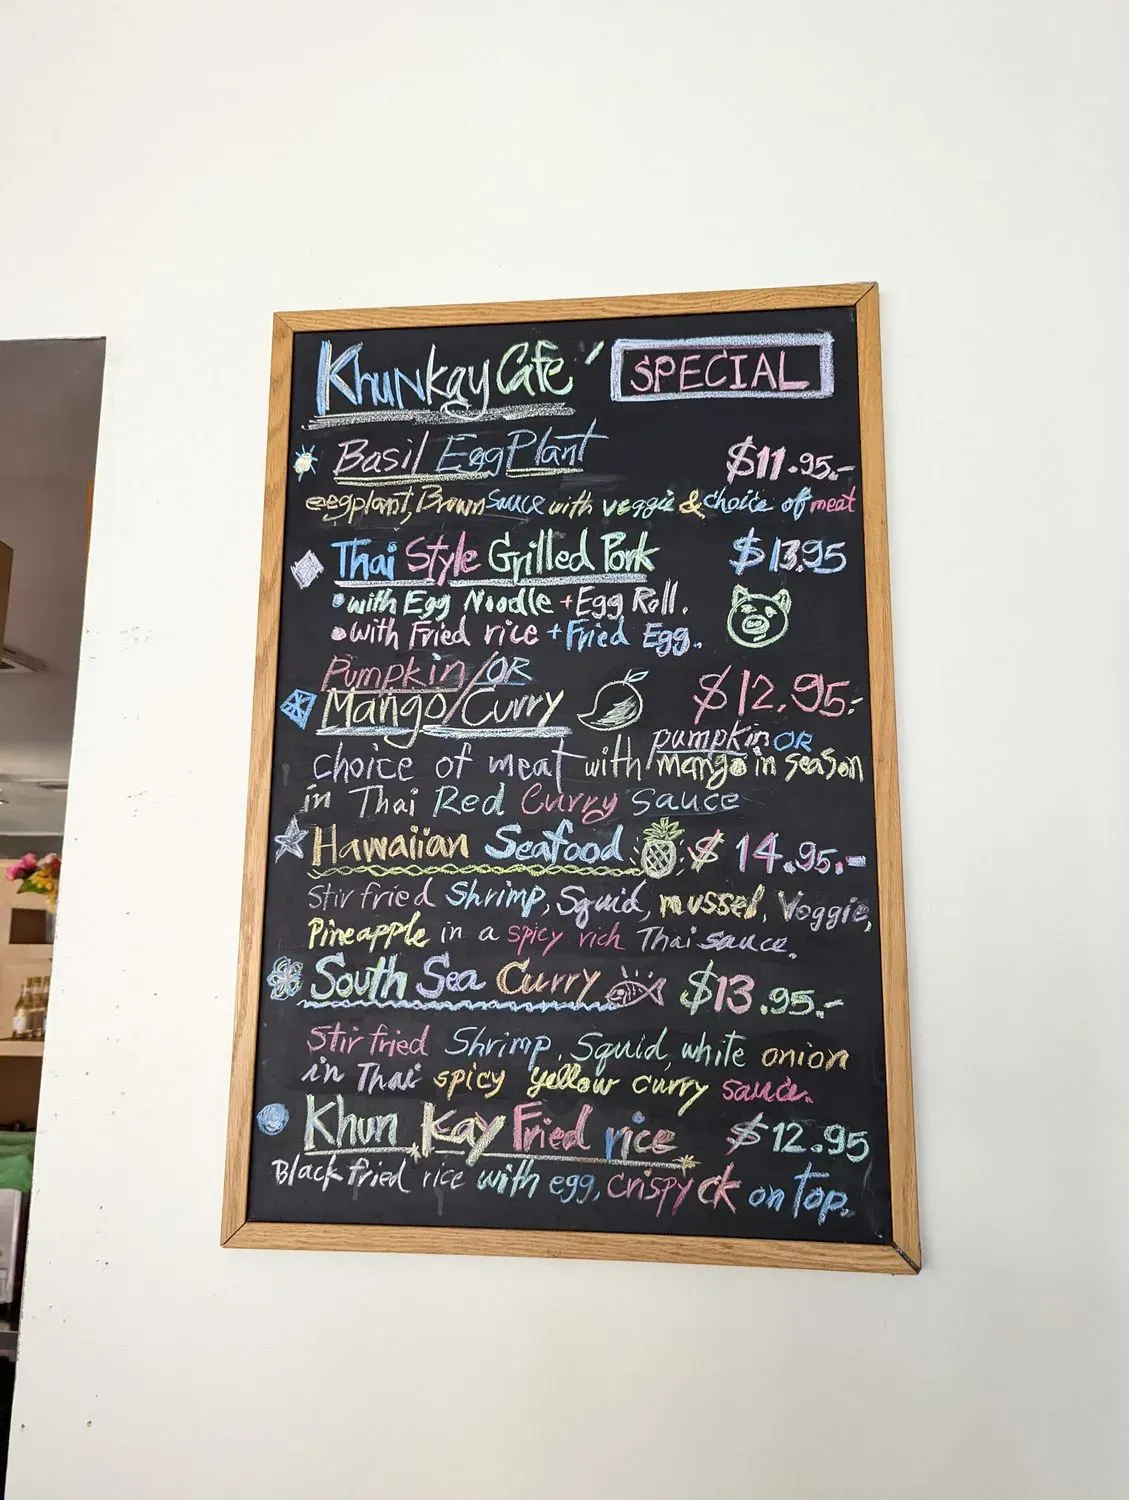 Khunkay Cafe' SPECIAL
Basil EggPlant $11.95.-
eegplant, Brown Sauce with veggie & choice of meat
Thai Style Grilled Pork $13.95
• with Egg Noodle + Egg Roll.
• with Fried rice + Fried Egg.
Pumpkin/OR
Mango/Curry $12.95.-
pumpkin OR
choice of meat with mango in season
in Thai Red Curry Sauce
Hawaiian Seafood $14.95.-
Stir fried Shrimp, Squid, mussel, Veggie,
Pineapple in a spicy rich Thai sauce.
South Sea Curry $13.95.-
Stir fried Shrimp, Squid, white onion
in Thai spicy yellow curry sauce.
Khun Kay Fried rice $12.95
Black fried rice with egg, crispy ck on top.